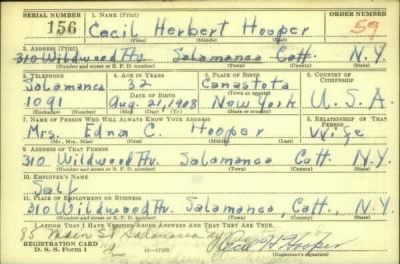 SERIAL NUMBER 1. NAME (Print) ORDER NUMBER
156 Cecil Herbert Hooper 59
(First) (Middle) (Last)
2. ADDRESS (Print)
310 Wildwood Av. Salamanca Catt. N.Y.
(Number and street or R. F. D. number) (Town) (County) (State)
3. TELEPHONE 4. AGE IN YEARS 5. PLACE OF BIRTH 6. COUNTRY OF CITIZENSHIP
Salamanca 32 Canastota
DATE OF BIRTH
1091 Aug. 21, 1908 New York U.S.A.
(Exchange) (Number) (Mo.) (Day) (Yr.) (State or country)
7. NAME OF PERSON WHO WILL ALWAYS KNOW YOUR ADDRESS 8. RELATIONSHIP OF THAT PERSON
Mrs. Edna C. Hooper Wife
(Mr., Mrs., Miss) (First) (Middle) (Last)
9. ADDRESS OF THAT PERSON
310 Wildwood Av. Salamanca Catt. N.Y.
(Number and street or R. F. D. number) (Town) (County) (State)
10. EMPLOYER'S NAME
Self
11. PLACE OF EMPLOYMENT OR BUSINESS
310 Wildwood Av. Salamanca, Catt., N.Y.
(Number and street or R. F. D. number) (Town) (County) (State)
I AFFIRM THAT I HAVE VERIFIED ABOVE ANSWERS AND THAT THEY ARE TRUE.
85 Main St Salamanca
REGISTRATION CARD Cecil H Hooper
D. S. S. Form 1 (Registrant's signature)